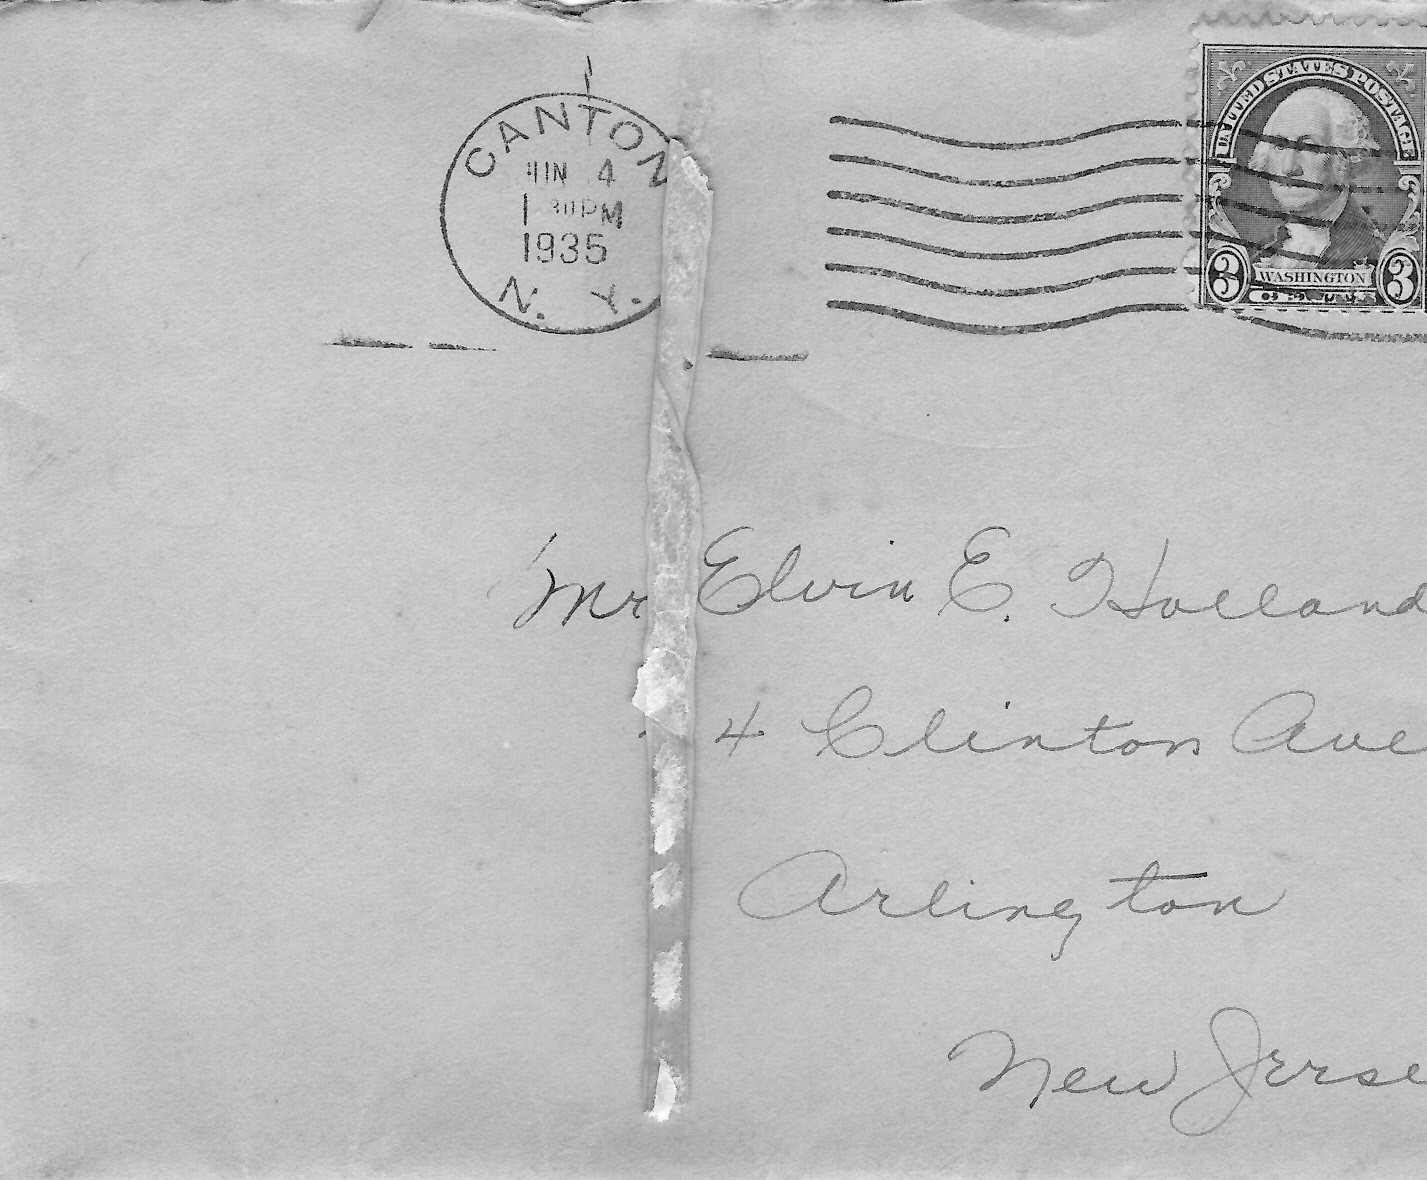 CANTON
JUN 4
1 30 PM
1935
N. Y.
UNITED STATES POSTAGE
3 WASHINGTON 3
Mr Elvin E. Holland
4 Clinton Ave
Arlington
New Jerse